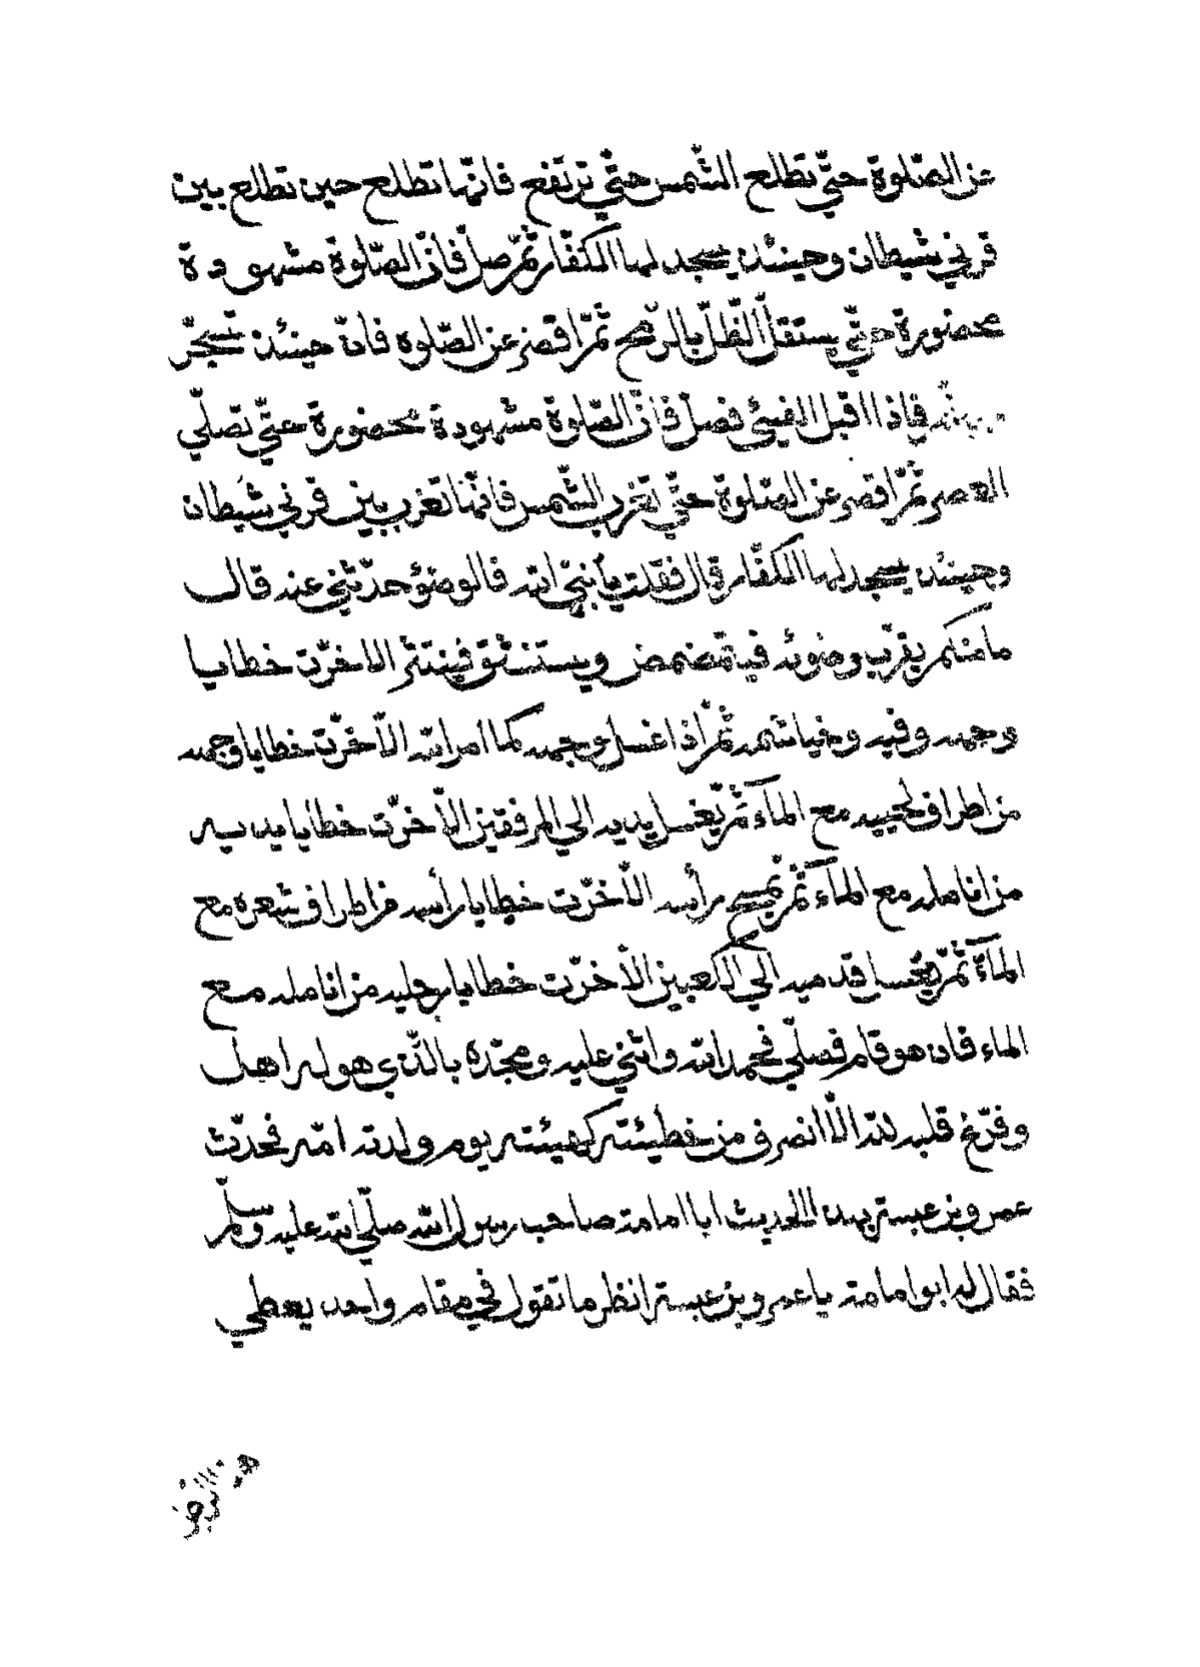 عن الصّلوة حتّي تطلع الشّمس حتّي ترتفع فانّها تطلع حين تطلع بين
قرني شيطان وحينئذ يسجد لها الكفّار ثمّ صلّ فانّ الصّلوة مشهودة
محضورة حتّي يستقلّ الظّلّ بالرّمح ثمّ اقصر عن الصّلوه فانّ حينئذ تسجّر
فاذا اقبل الفيئ فصلّ فانّ الصّلوة مشهودة محضورة حتّي تصلّي
العصر ثمّ اقصر عن الصّلوة حتّي تغرب الشّمس فانّها تغرب بين قرني شيطان
وحينئذ يسجد لها الكفّار قال فقلت يا نبيّ الله فالوضؤ حدّثني عنه قال
ما منكم يقرّب وضوئه فيتمضمض ويستنشق فينتثر الا خرّت خطايا
وجهه وفيه وخياشمه ثمّ اذا غسل وجهه كما امر الله الّا خرّت خطايا وجهه
من اطراف لحييه مع المآء ثمّ يغسل يديه الي المرفقين الّا خرّت خطايا يديه
من انامله مع المآء ثمّ يمسح برأسه الّا خرّت خطايا رأسه من اطراف شعره مع
المآء ثمّ يغسل قدميه الي الكعبين الّا خرّت خطايا رجليه من انامله مع
الماء فان هو قام فصلّي فحمد الله واثني عليه ومجّده بالّذي هو له اهل
وفرّغ قلبه لله الّا انصرف من خطيئته كهيئته يوم ولدته امّه فحدّث
عمرو بن عبسة بهذا الحديث ابا امامة صاحب رسول الله صلّي الله عليه وسلّم
فقال له ابو امامة يا عمرو بن عبسة انظر ما تقول في مقام واحد يعطي